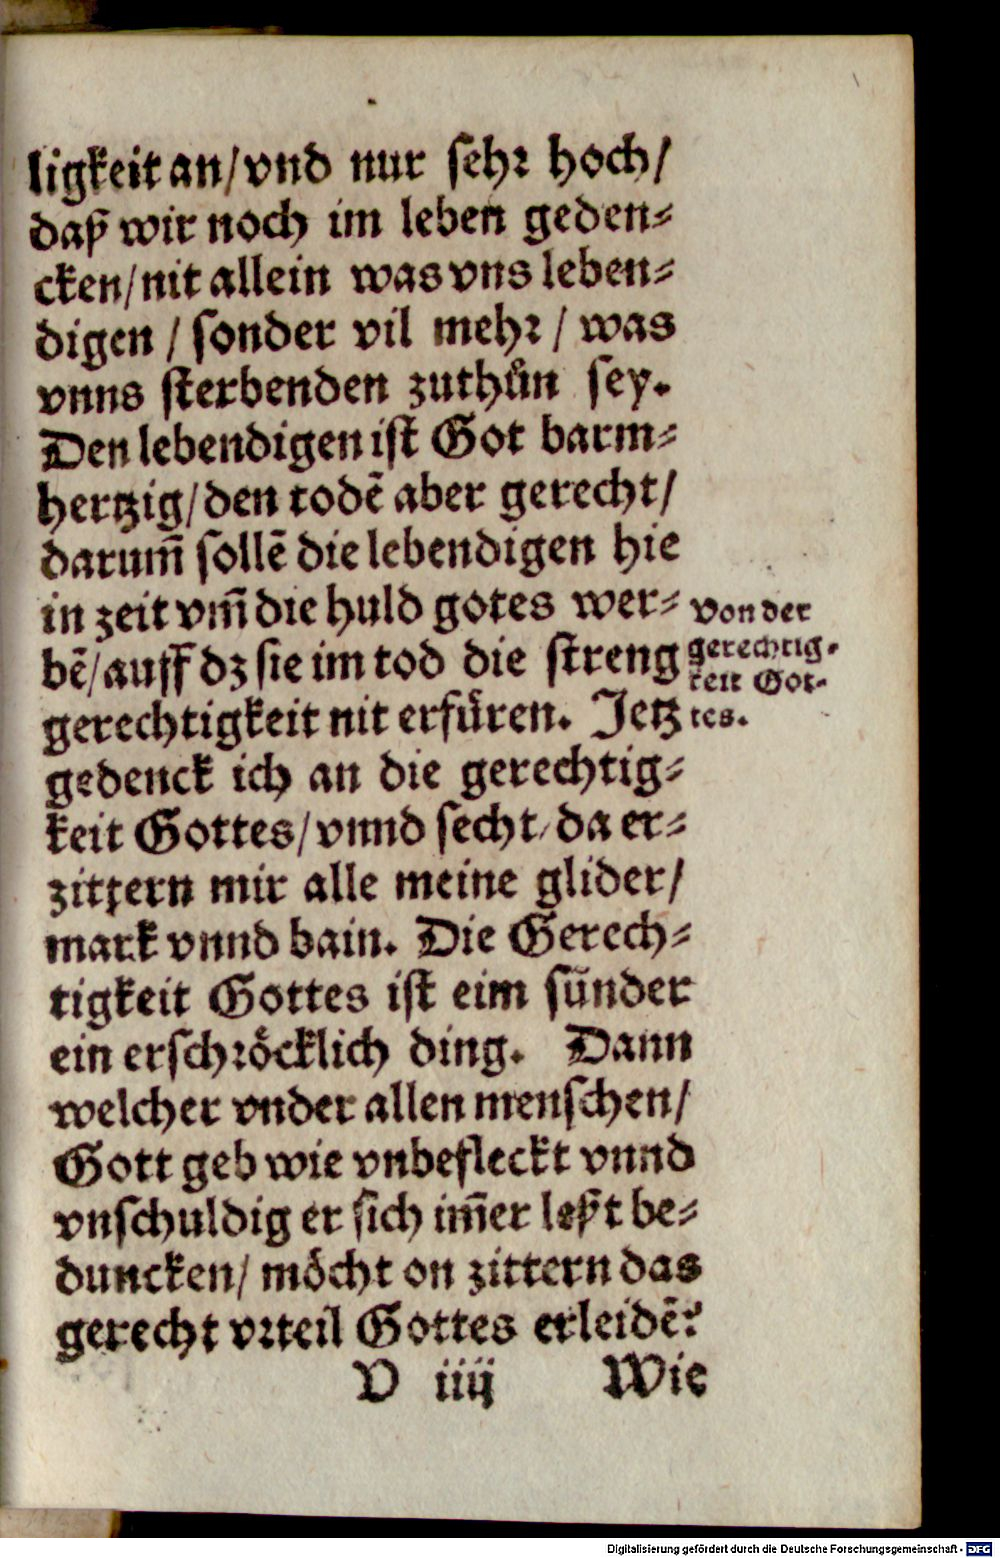 ligkeit an/ vnd nur sehr hoch/
daß wir noch im leben geden⸗
cken/ nit allein was vns leben⸗
digen / sonder vil mehr / was
vnns sterbenden zuthůn sey.
Den lebendigen ist Got barm⸗
hertzig/ den todē aber gerecht/
darum̄ sollē die lebendigen hie
in zeit vm̄ die huld gotes wer⸗
bē/ auff dz sie im tod die streng
gerechtigkeit nit erfüren. Jetz
gedenck ich an die gerechtig⸗
keit Gottes/ vnnd secht/ da er⸗
zittern mir alle meine glider/
mark vnnd bain. Die Gerech⸗
tigkeit Gottes ist eim sünder
ein erschröcklich ding. Dann
welcher vnder allen menschen/
Gott geb wie vnbefleckt vnnd
vnschuldig er sich im̄er leßt be⸗
duncken/ möcht on zittern das
gerecht vrteil Gottes erleidē?
V iiij Wie
Von der
gerechtig⸗
keit Got⸗
tes.
Digitalisierung gefördert durch die Deutsche Forschungsgemeinschaft - DFG